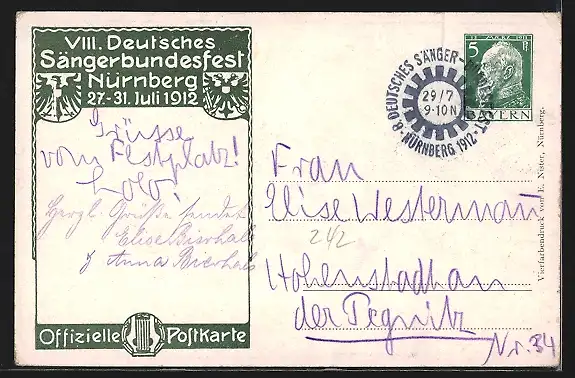 VIII. Deutsches
Sängerbundesfest
Nürnberg
27.-31. Juli 1912
Grüsse
vom Festplatz!
Herzl. Grüße sendet
Elise Bierhals
u. Anna Bierhals
Offizielle Postkarte
8. DEUTSCHES SÄNGER-BUNDESFEST
29/7
9-10 N
NÜRNBERG 1912
5 Pf
BAYERN
Frau
Elise Westermann
242
Hohenstadt an
der Pegnitz
Nr. 34
Vierfarbendruck von E. Nister, Nürnberg.